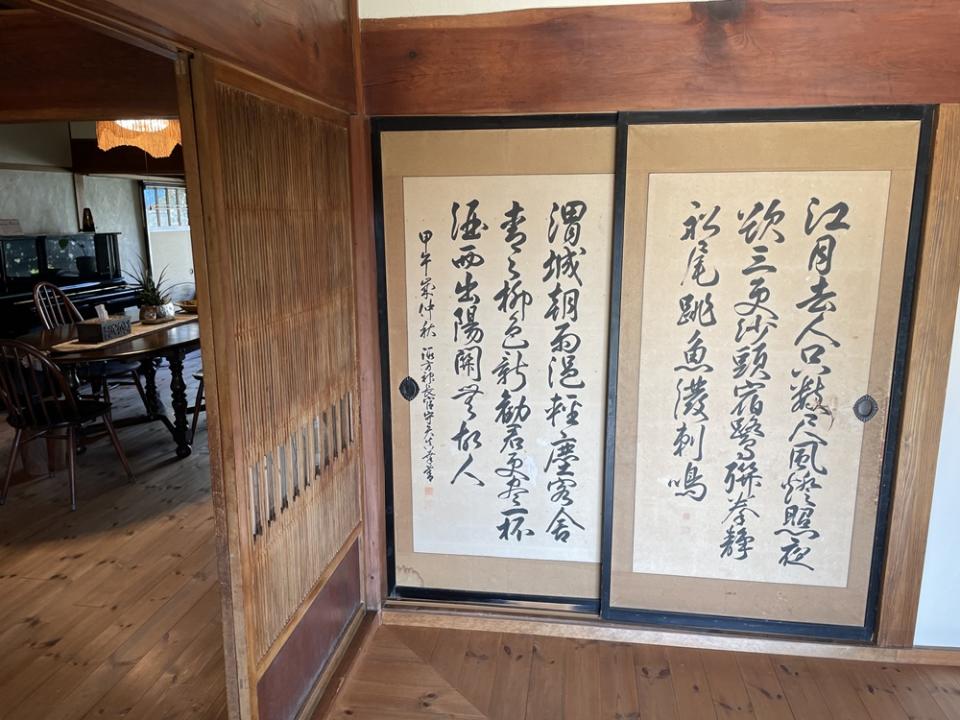 江月去人只數尺風燈照夜
欲三更沙頭宿鷺聯拳靜
船尾跳魚潑刺鳴
渭城朝雨浥輕塵客舍
青々柳色新勸君更盡一杯
酒西出陽關無故人
甲午歳仲秋 諏方神長官守矢真幸書